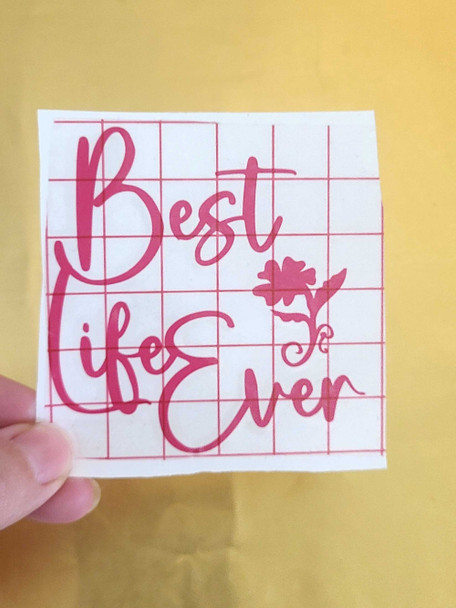 Best
Life Ever